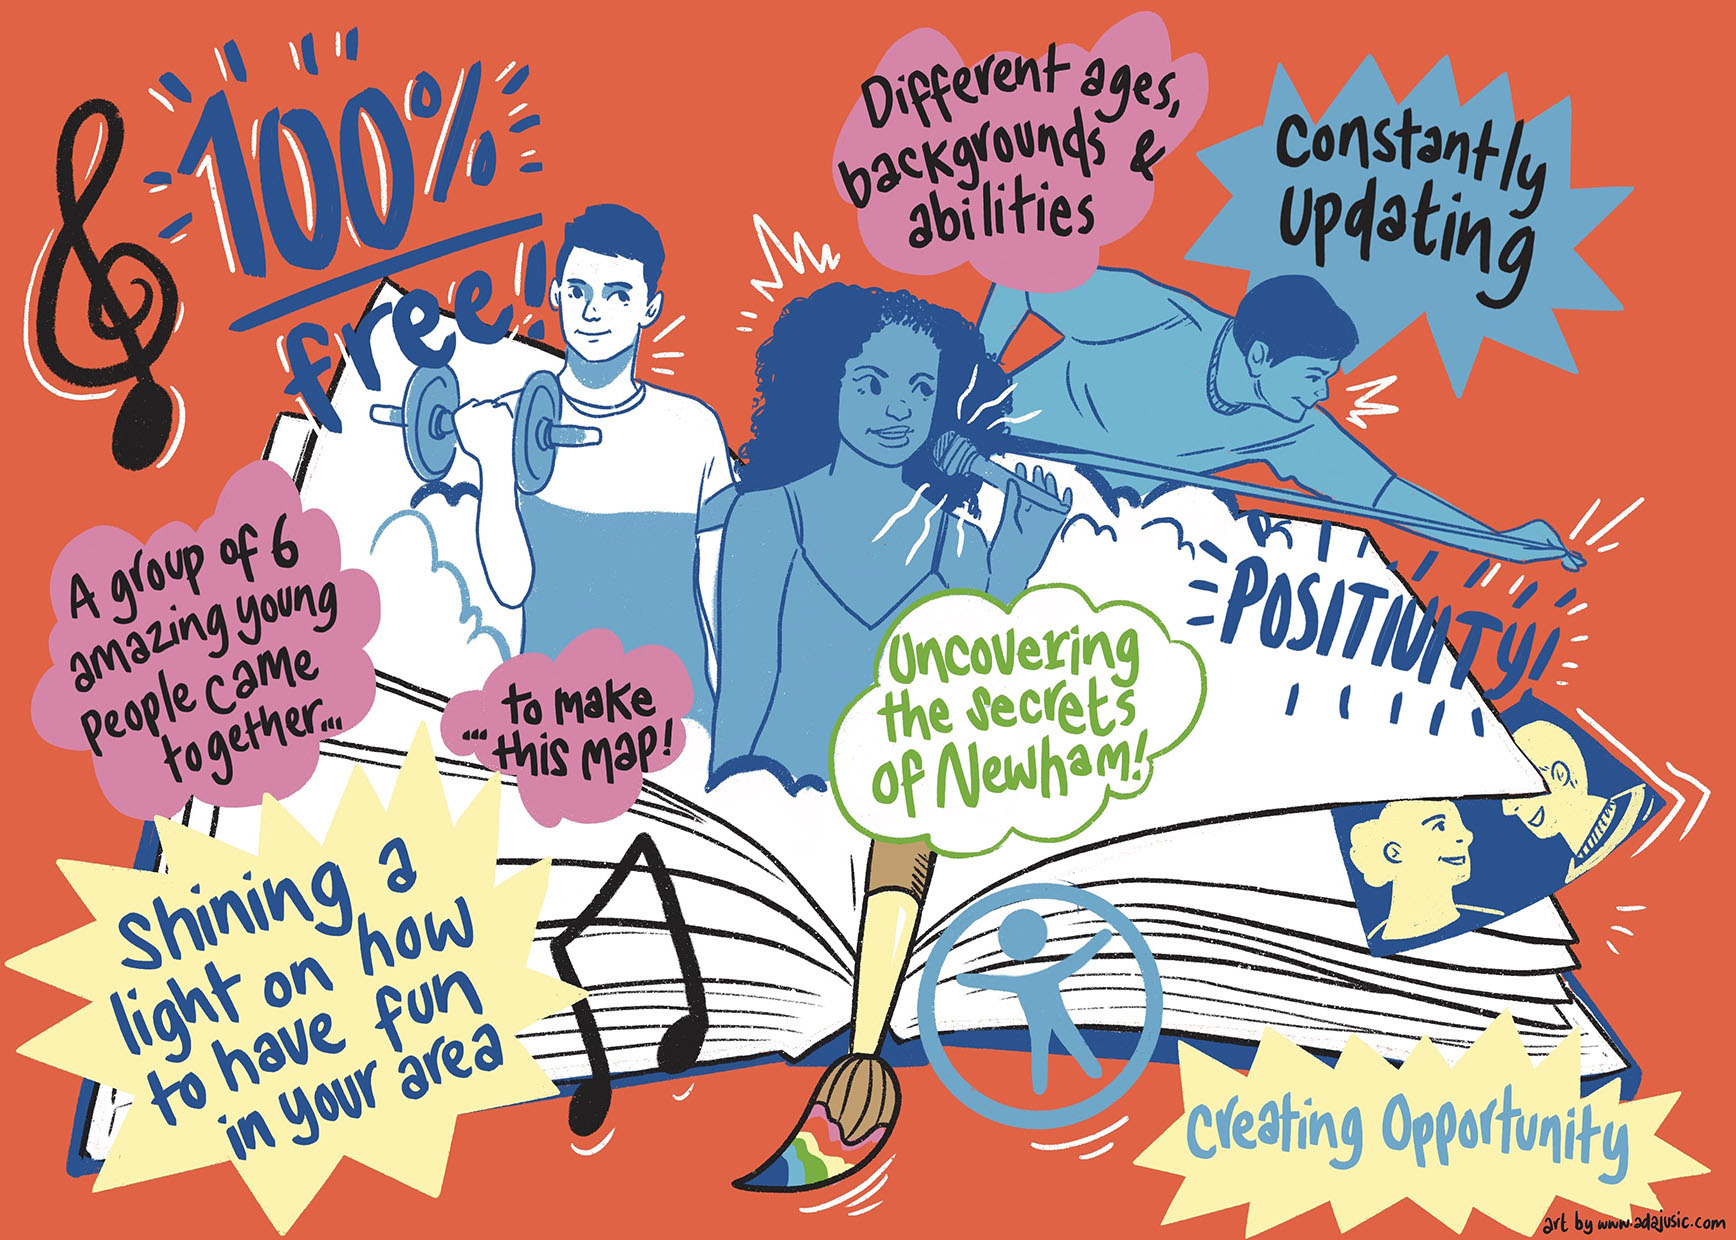 100%
free!
Different ages,
backgrounds &
abilities
Constantly
updating
A group of 6
amazing young
people came
together...
...to make
this map!
Uncovering
the secrets
of Newham!
POSITIVITY!
Shining a
light on how
to have fun
in your area
Creating Opportunity
art by www.adajusic.com